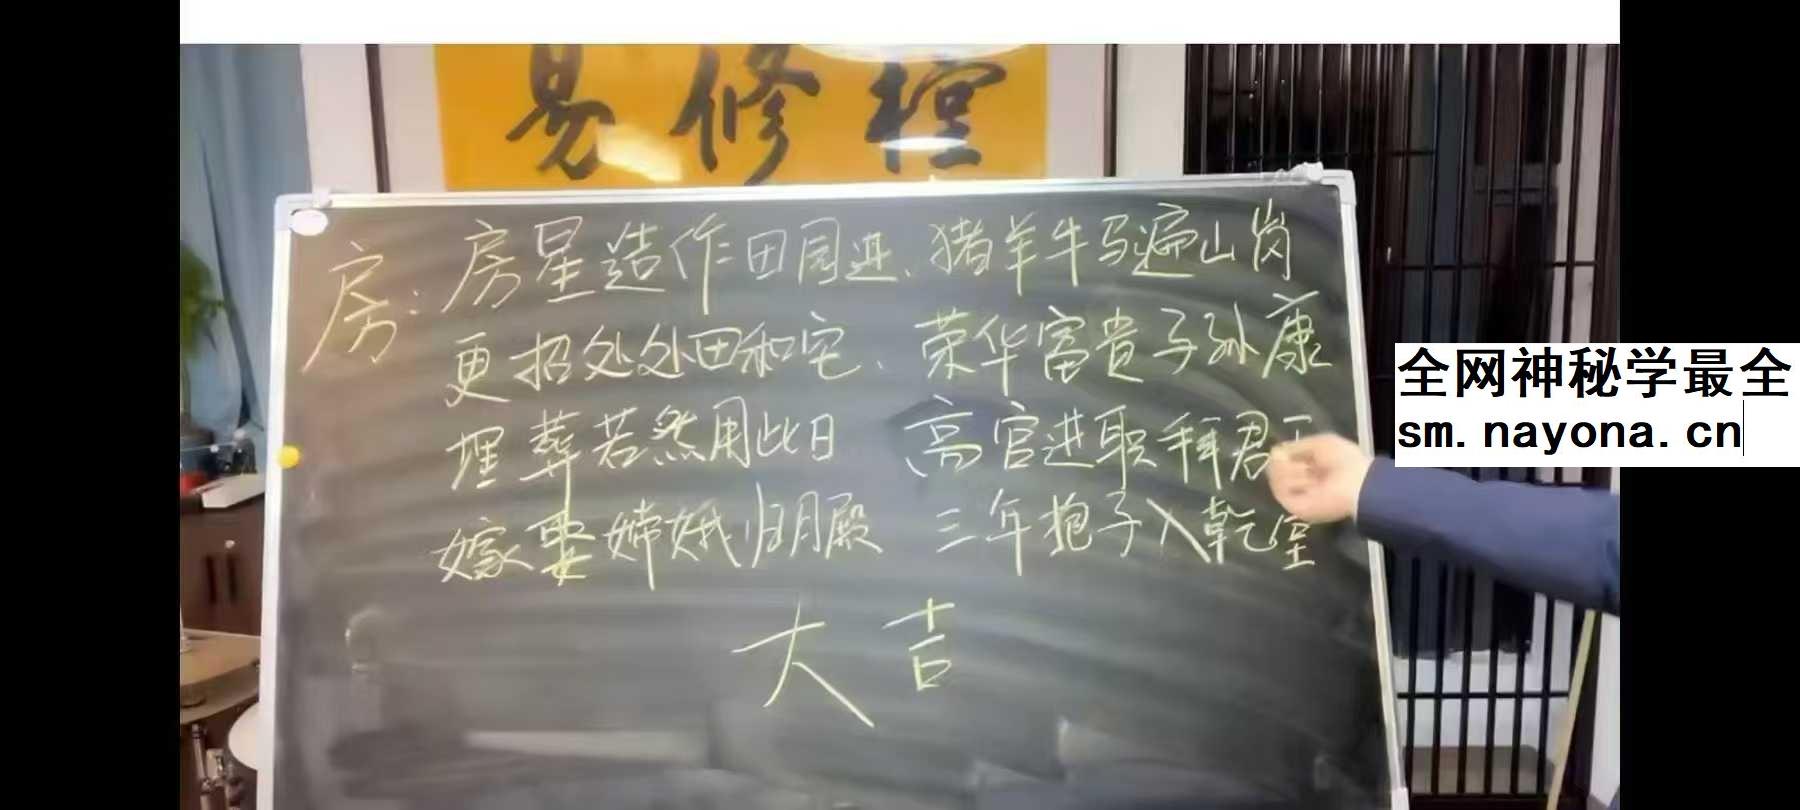 易修檀
房：房星造作田园进、猪羊牛马遍山岗
更招处处田和宅、荣华富贵子孙康
埋葬若然用此日 高官进职拜君王
嫁娶嫦娥归月殿 三年抱子入乾堂
大吉
全网神秘学最全
sm.nayona.cn